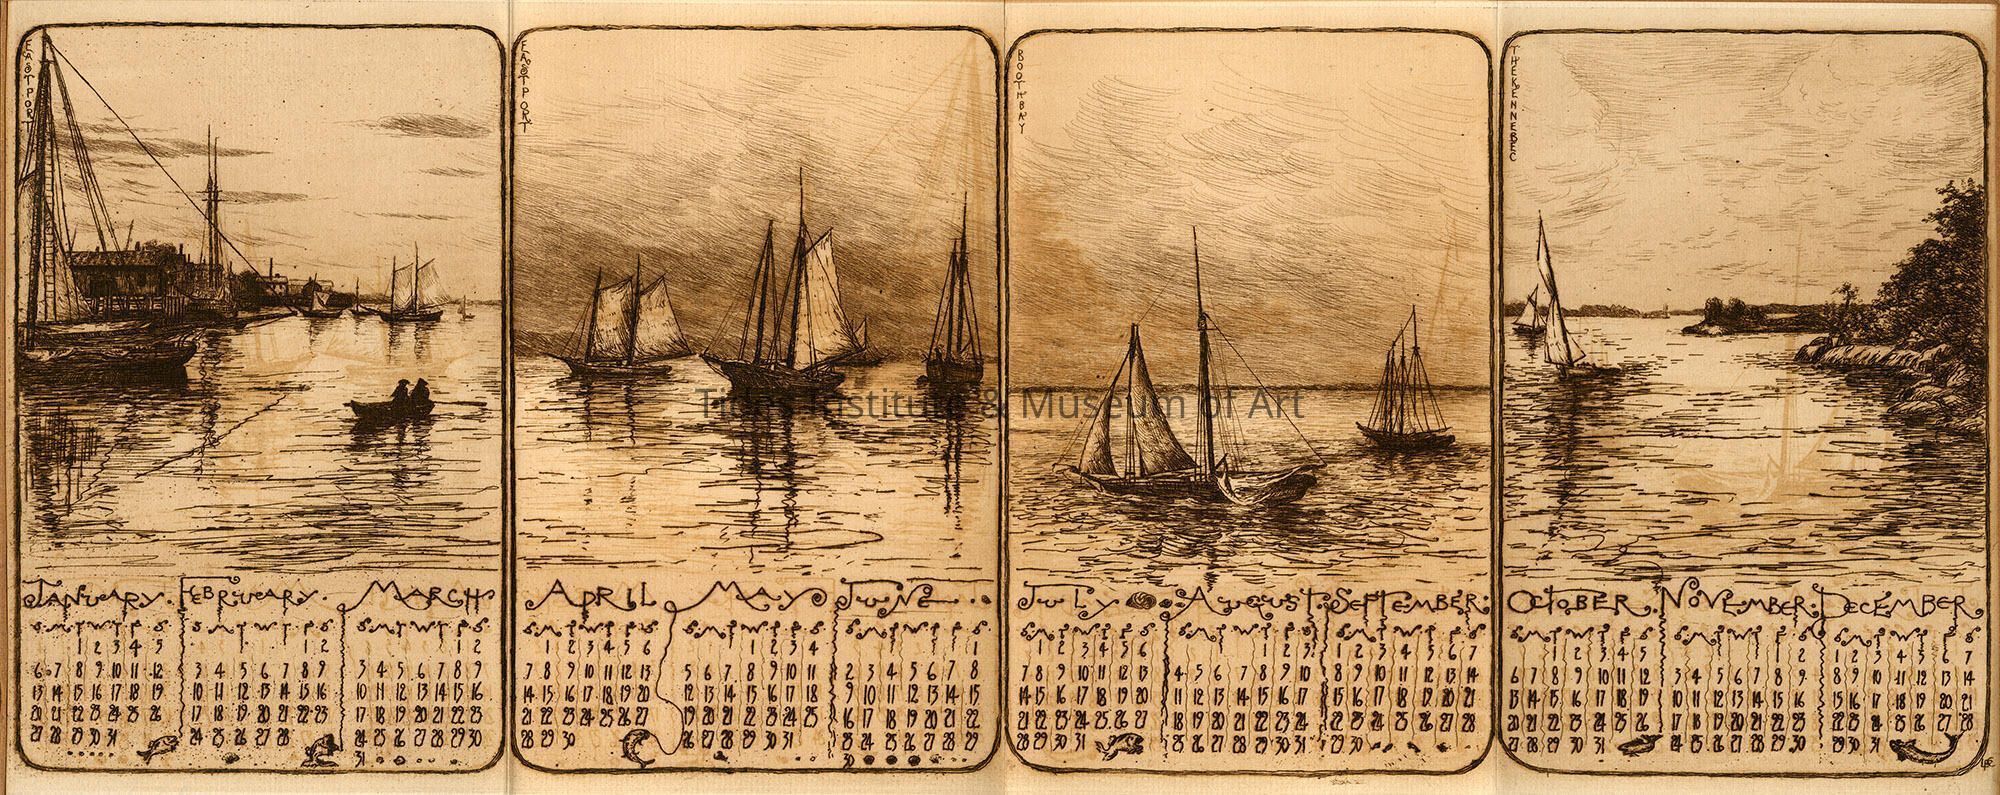 EASTPORT
JANUARY.
S M T W T F S
1 2 3 4 5
6 7 8 9 10 11 12
13 14 15 16 17 18 19
20 21 22 23 24 25 26
27 28 29 30 31
FEBRUARY.
S M T W T F S
1 2
3 4 5 6 7 8 9
10 11 12 13 14 15 16
17 18 19 20 21 22 23
24 25 26 27 28
MARCH
S M T W T F S
1 2
3 4 5 6 7 8 9
10 11 12 13 14 15 16
17 18 19 20 21 22 23
24 25 26 27 28 29 30
31
EASTPORT
APRIL
S M T W T F S
1 2 3 4 5 6
7 8 9 10 11 12 13
14 15 16 17 18 19 20
21 22 23 24 25 26 27
28 29 30
MAY
S M T W T F S
1 2 3 4
5 6 7 8 9 10 11
12 13 14 15 16 17 18
19 20 21 22 23 24 25
26 27 28 29 30 31
JUNE
S M T W T F S
1
2 3 4 5 6 7 8
9 10 11 12 13 14 15
16 17 18 19 20 21 22
23 24 25 26 27 28 29
30
BOOTHBAY
JULY
S M T W T F S
1 2 3 4 5 6
7 8 9 10 11 12 13
14 15 16 17 18 19 20
21 22 23 24 25 26 27
28 29 30 31
AUGUST
S M T W T F S
1 2 3
4 5 6 7 8 9 10
11 12 13 14 15 16 17
18 19 20 21 22 23 24
25 26 27 28 29 30 31
SEPTEMBER.
S M T W T F S
1 2 3 4 5 6 7
8 9 10 11 12 13 14
15 16 17 18 19 20 21
22 23 24 25 26 27 28
29 30
THE KENNEBEC
OCTOBER.
S M T W T F S
1 2 3 4 5
6 7 8 9 10 11 12
13 14 15 16 17 18 19
20 21 22 23 24 25 26
27 28 29 30 31
NOVEMBER.
S M T W T F S
1 2
3 4 5 6 7 8 9
10 11 12 13 14 15 16
17 18 19 20 21 22 23
24 25 26 27 28 29 30
DECEMBER
S M T W T F S
1 2 3 4 5 6 7
8 9 10 11 12 13 14
15 16 17 18 19 20 21
22 23 24 25 26 27 28
29 30 31
Tides Institute & Museum of Art